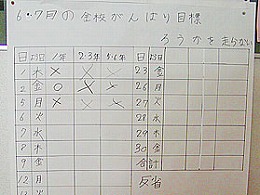 6・7月の全校がんばり目標
ろうかを走らない
日 お日 1年 2・3年 5・6年 日 お日
1 木 × × × 23 金
2 金 ○ × × 26 月
5 月 × × × 27 火
6 火 28 水
7 水 29 木
8 木 30 金
9 金 合計
12 月 反省